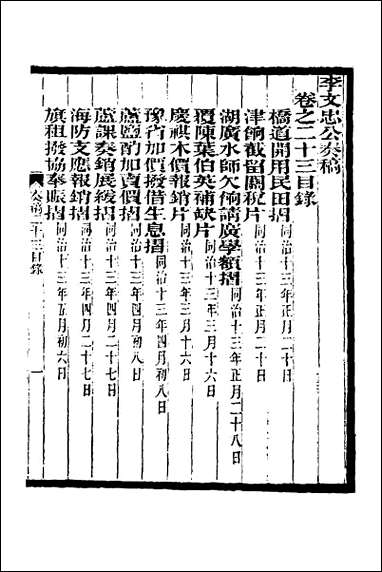 李文忠公奏稿
卷之二十三目錄
橋道開用民田摺同治十三年正月二十七日
津餉截留關稅片同治十三年正月二十七日
湖廣水師欠餉請廣學額摺同治十三年正月二十八日
覆陳葉伯英補缺片同治十三年三月十六日
慶祺木價報銷片同治十三年三月十六日
豫省加價撥借生息摺同治十三年四月初八日
蘆鹽酌加賣價摺同治十三年四月初八日
蘆課奏銷展緩摺同治十三年四月二十七日
海防支應報銷摺同治十三年四月二十七日
旗租撥協奉賑摺同治十三年五月初六日
奏稿二十三目錄
一